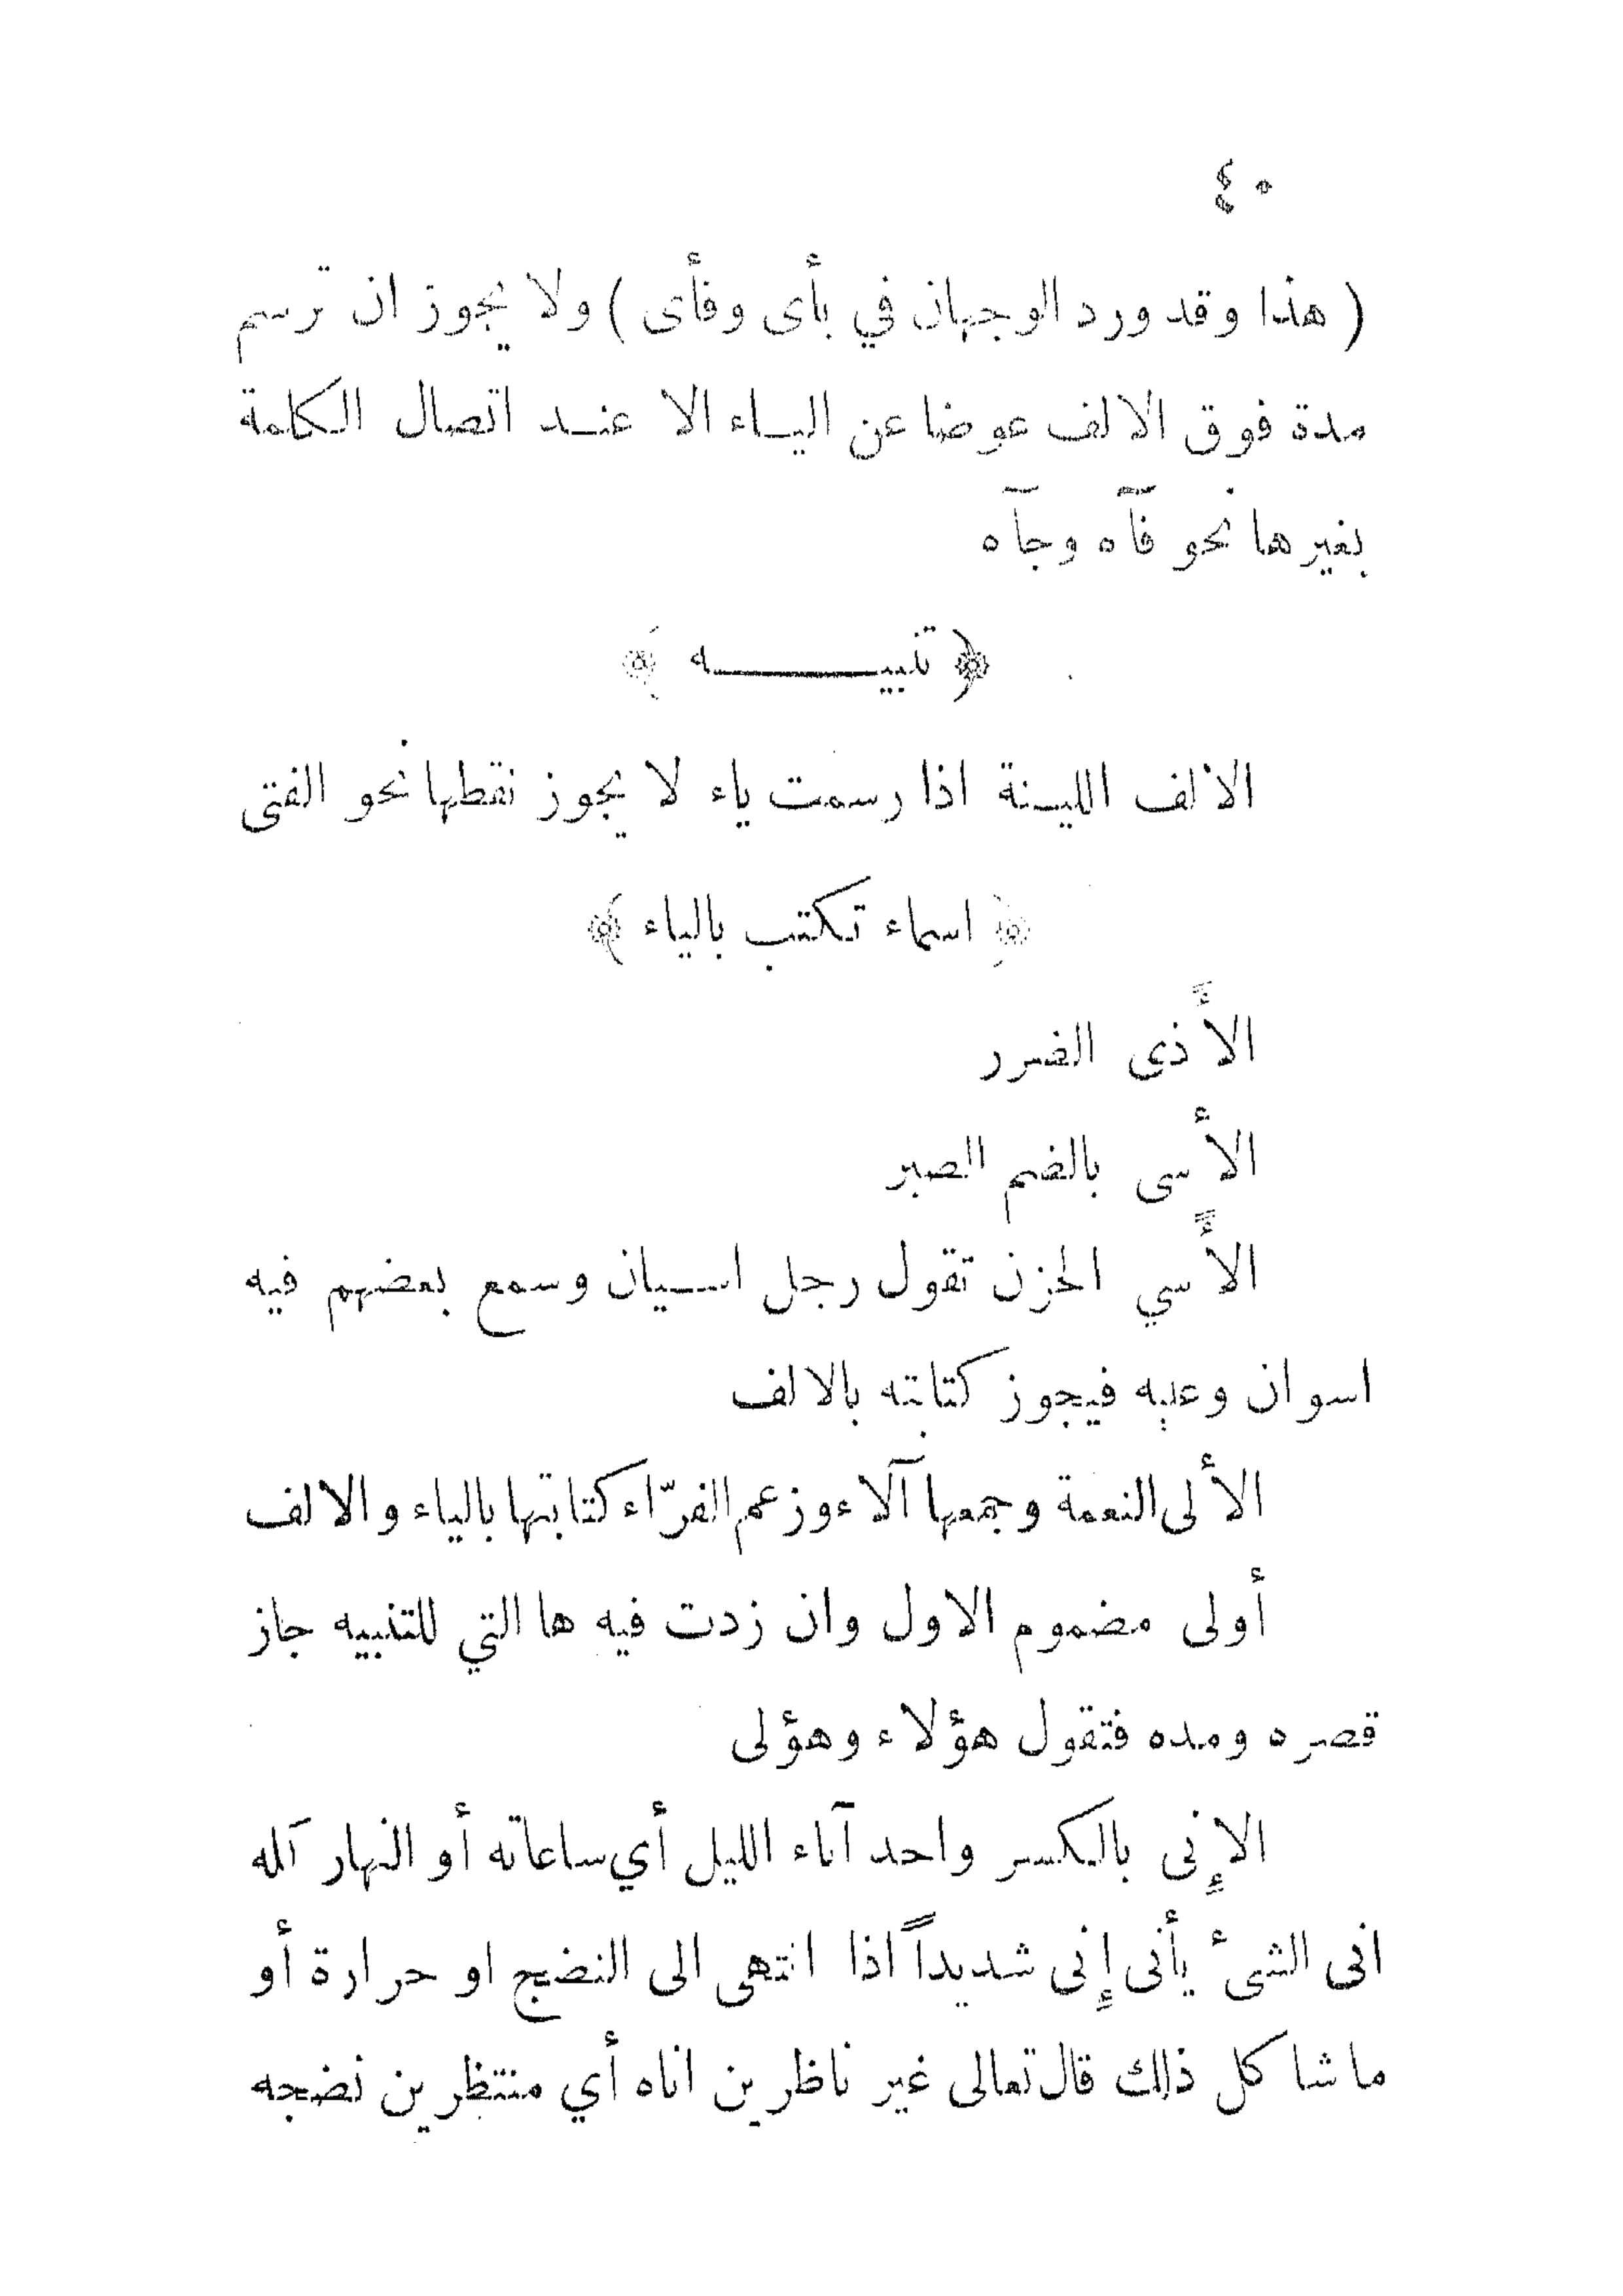 ٤٠
( هذا وقد ورد الوجهان في بأى وفأى ) ولا يجوز ان ترسم
مدة فوق الالف عوضا عن الياء الا عند اتصال الكلمة
بغيرها نحو فآه وجآه
﴿ تنبيه ﴾
الالف اللينة اذا رسمت ياء لا يجوز نقطها نحو الفتى
﴿ اسماء تكتب بالياء ﴾
الأَذى الضرر
الأسى بالضم الصبر
الأَسي الحزن تقول رجل اسيان وسمع بعضهم فيه
اسوان وعليه فيجوز كتابته بالالف
الألى النعمة وجمعها آلاء وزعم الفرّاء كتابتها بالياء والالف
أولى مضموم الاول وان زدت فيه ها التي للتنبيه جاز
قصره ومده فتقول هؤلاء وهؤلى
الإِنى بالكسر واحد آناء الليل أي ساعاته أو النهار كله
انى الشىء يأنى إِنى شديداً اذا انتهى الى النضج او حرارة أو
ما شاكل ذلك قال تعالى غير ناظرين اناه أي منتظرين نضجه